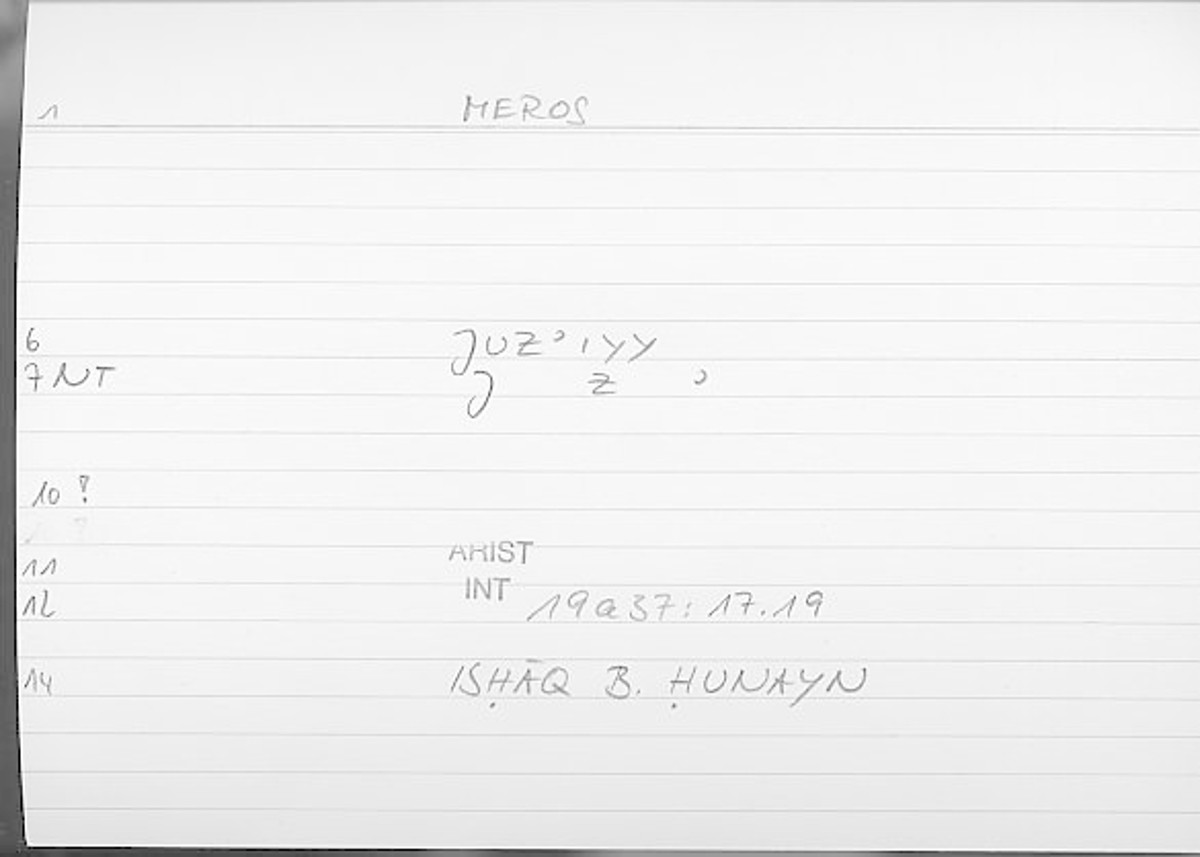 1 MEROS
6 JUZʾIYY
7 NT J Z ʾ
10 ?
11 ARIST
INT
12 19a37: 17.19
14 ISḤĀQ B. ḤUNAYN